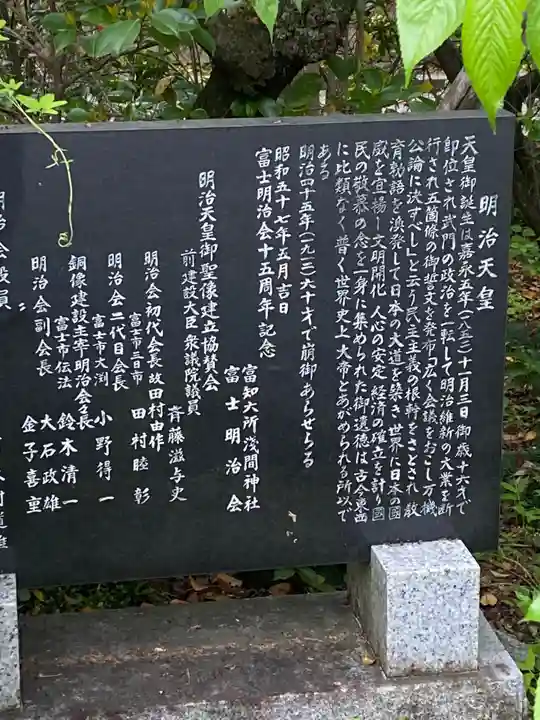 明治天皇
天皇御誕生は嘉永五年(一八五二)十一月三日御歳十六才で
即位され武門の政治を一転して明治維新の大業を断
行され五箇條の御誓文を発布し広く会議をおこし万機
公論に決すべし」と云う民主主義の根幹をさとされ 教
育勅語を渙発して日本の大道を築き世界に日本の國
威を宣揚し文明開化 人心の安定 経済の確立を計り國
民の敬慕の念を一身に集められた御遺徳は古今東西
に比類なく普く世界史上大帝とあがめられる所以で
ある
明治四十五年(一九一二)六十才で崩御あらせらる
昭和五十七年五月吉日
富士明治会十五周年記念
富知大所浅間神社
富士明治会
明治天皇御聖像建立協賛会
前建設大臣 衆議院議員
斉藤滋与史
明治会初代会長故田村由作
富士市三日市 田村睦彰
明治会二代目会長
富士市大渕 小野得一
銅像建設主宰明治会々長
富士市伝法 鈴木清一
明治会副会長 大石政雄
〃 金子喜重
明治会役員